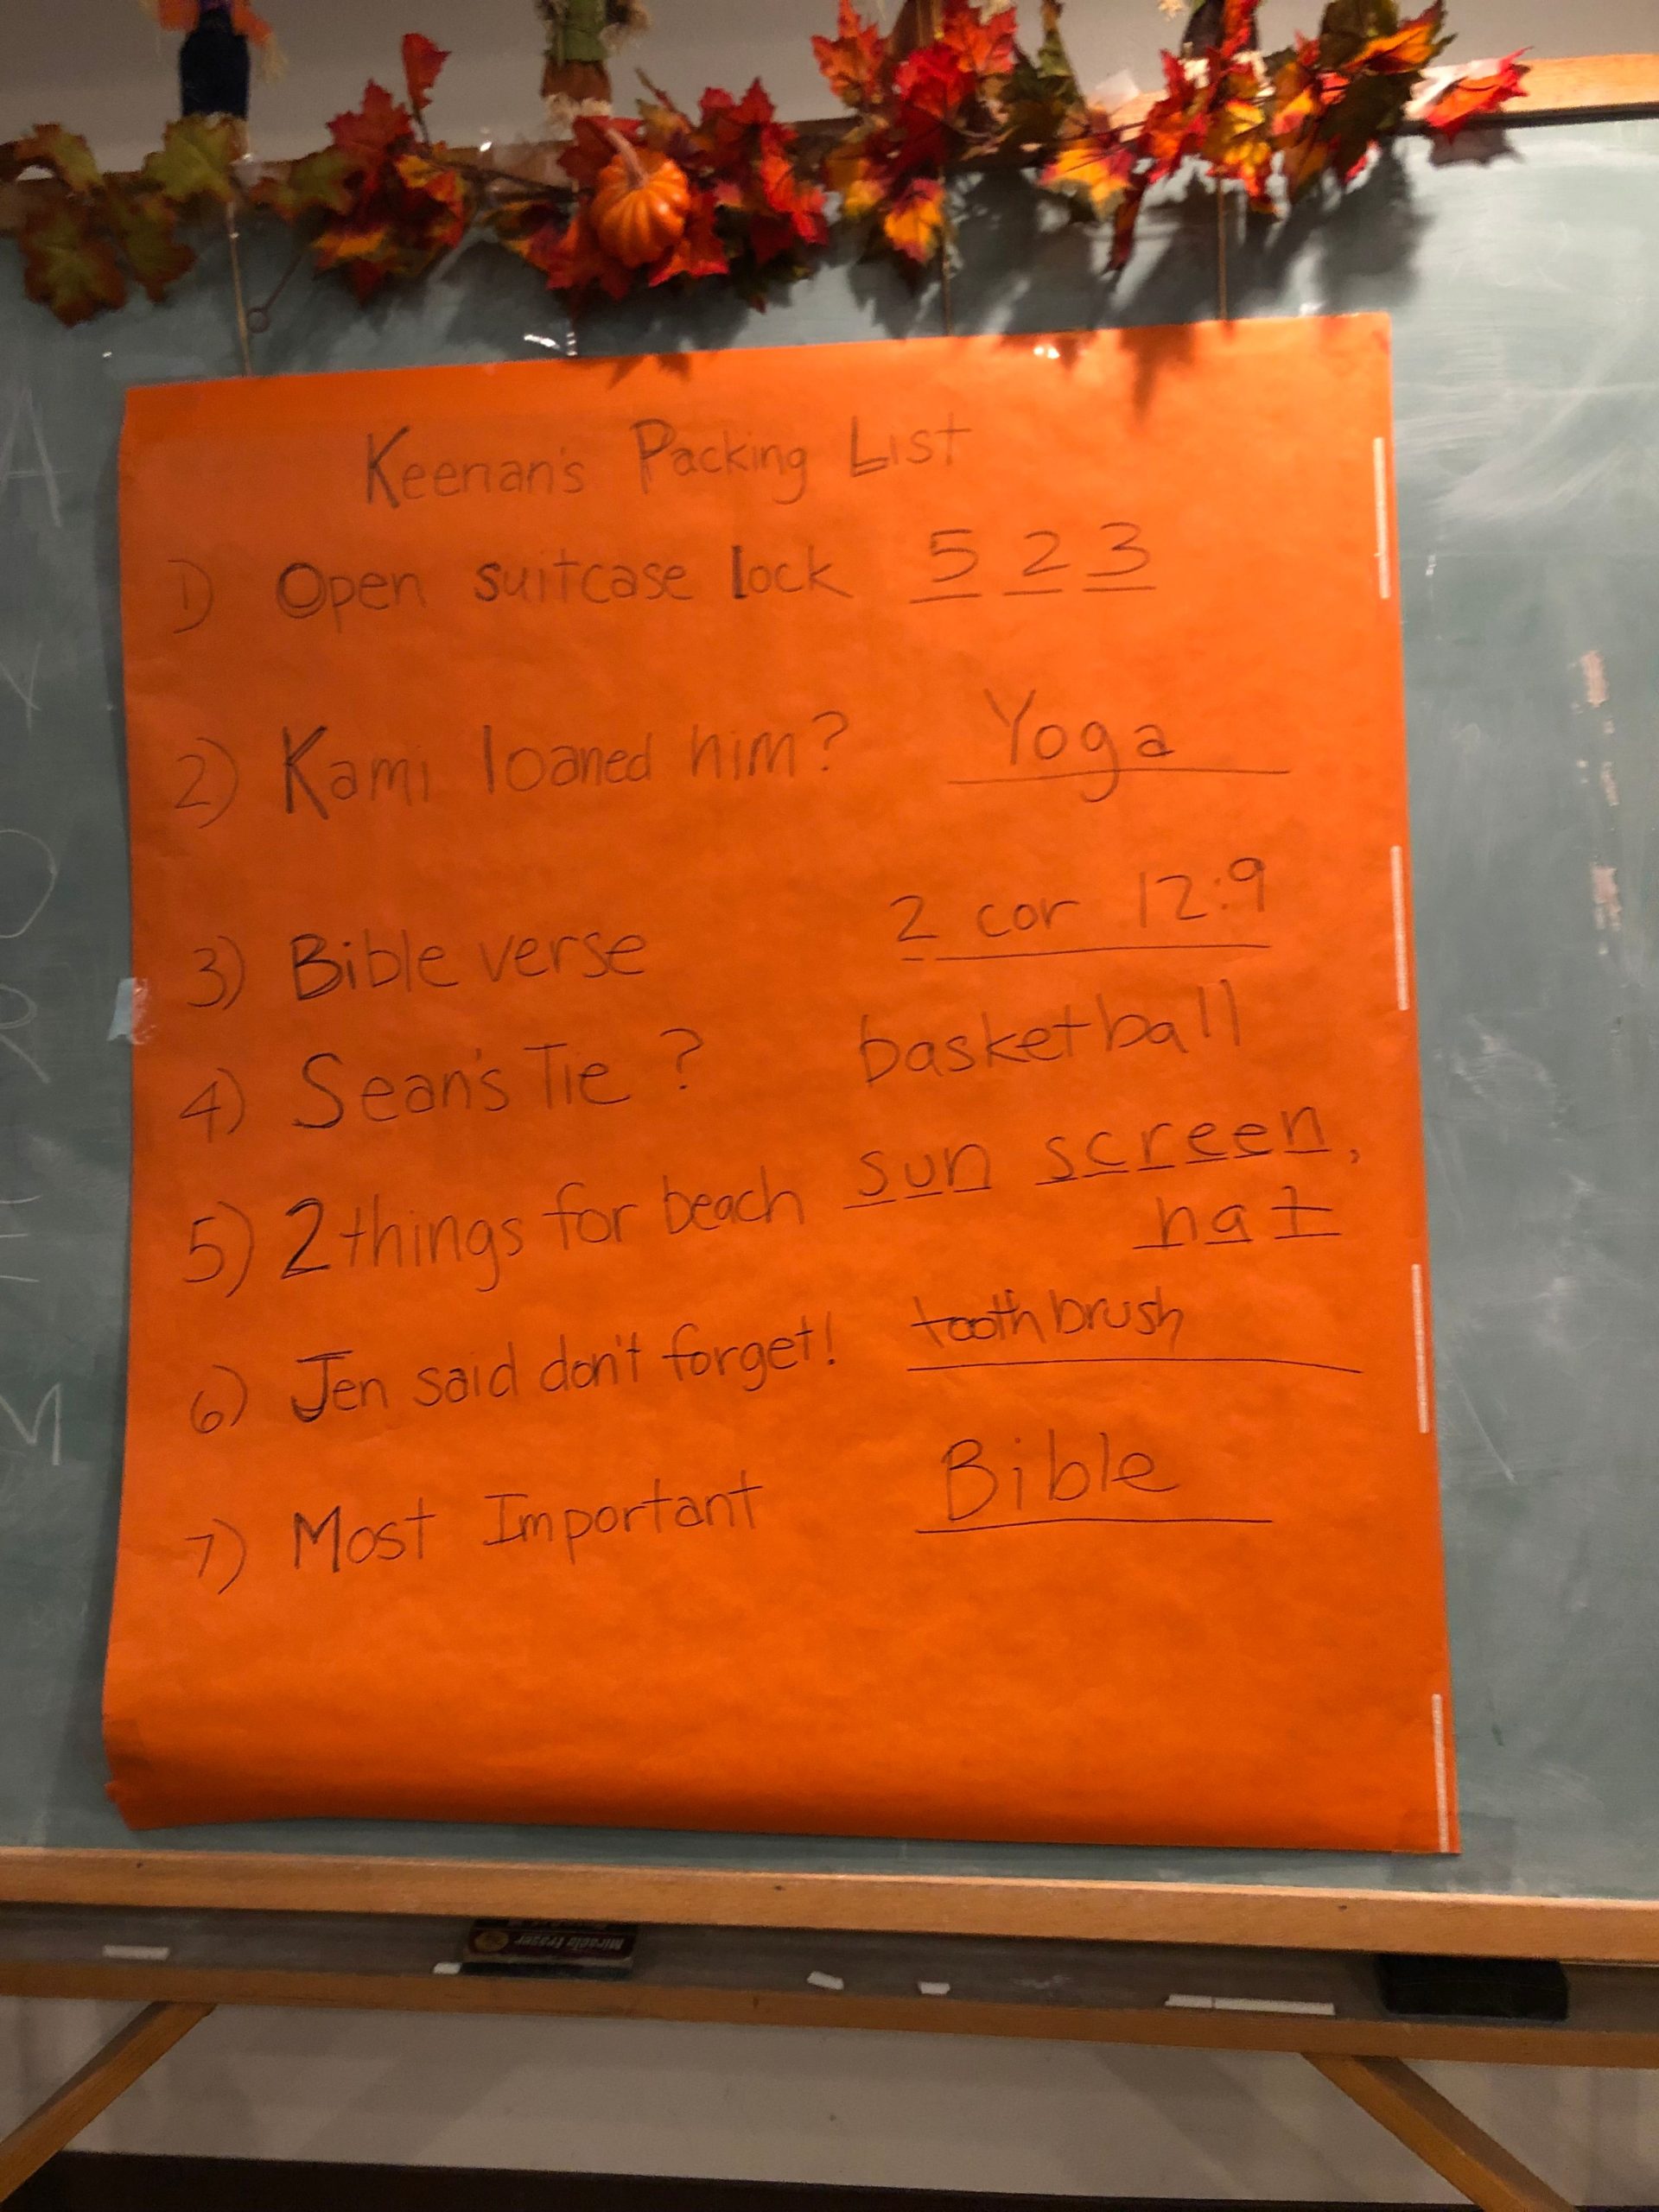 Keenan's Packing List
1) Open suitcase lock 5 2 3
2) Kami loaned him? Yoga
3) Bible verse 2 cor 12:9
4) Sean's Tie? basketball
5) 2 things for beach sun screen,
hat
6) Jen said don't forget! toothbrush
7) Most Important Bible
A
Y
O
R
M
Miracle Eraser